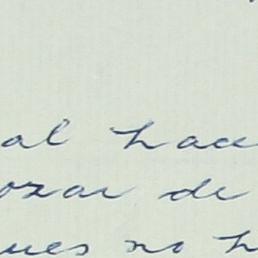 al hace
ozar de
ues no h